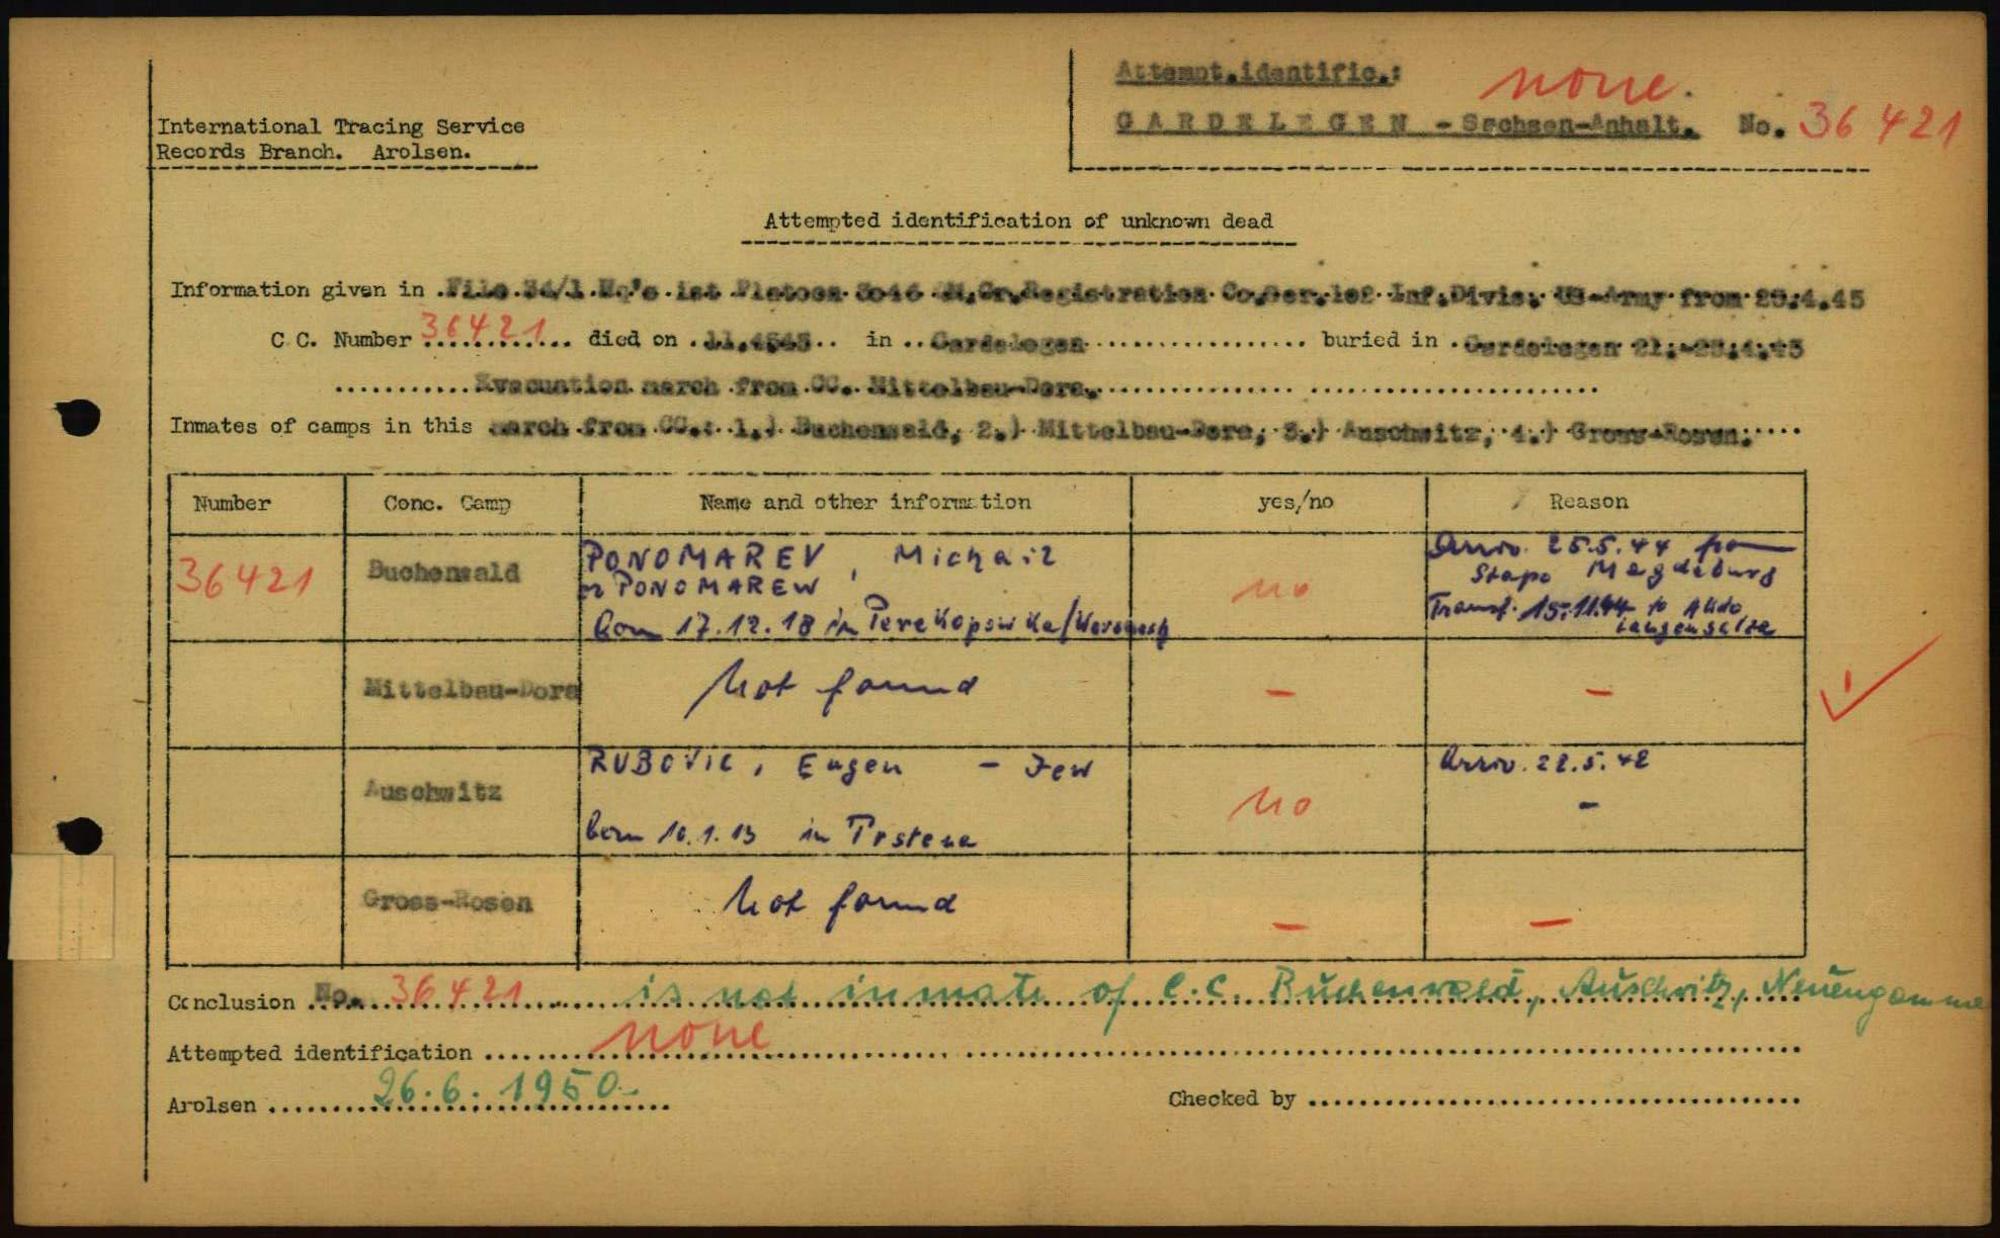 Attempt.identific.: none.
International Tracing Service
Records Branch. Arolsen.
GARDELEGEN - Sachsen-Anhalt. No. 36 421
Attempted identification of unknown dead
Information given in File 34/1 Hq's 1st Platoon 3046 Gr.Registration Co. Inf.Divis. US-Army from 25.4.45
C C. Number 36421 died on in Gardelegen buried in Gardelegen 21.-25.4.45
Evacuation march from CC. Mittelbau-Dora.
Inmates of camps in this march from CC.: 1.) Buchenwald, 2.) Mittelbau-Dora, 3.) Auschwitz, 4.) Gross-Rosen.
Number Conc. Camp Name and other information yes/no Reason
36421 Buchenwald PONOMAREV, Michail no Arriv. 25.5.44 from
or PONOMAREW Stapo Magdeburg
born 17.12.18 in Perekopowka/Woronesh Transf. 15.11.44 to Akdo
Langensalza
Mittelbau-Dora Not found — —
Auschwitz RUBOVIC, Eugen - Jew no Arriv. 22.5.42
born 10.1.13 in Trstena -
Gross-Rosen Not found — —
Conclusion No. 36421 is not inmate of C.C. Buchenwald, Auschwitz, Neuengamme
Attempted identification none
Arolsen 26.6.1950 Checked by